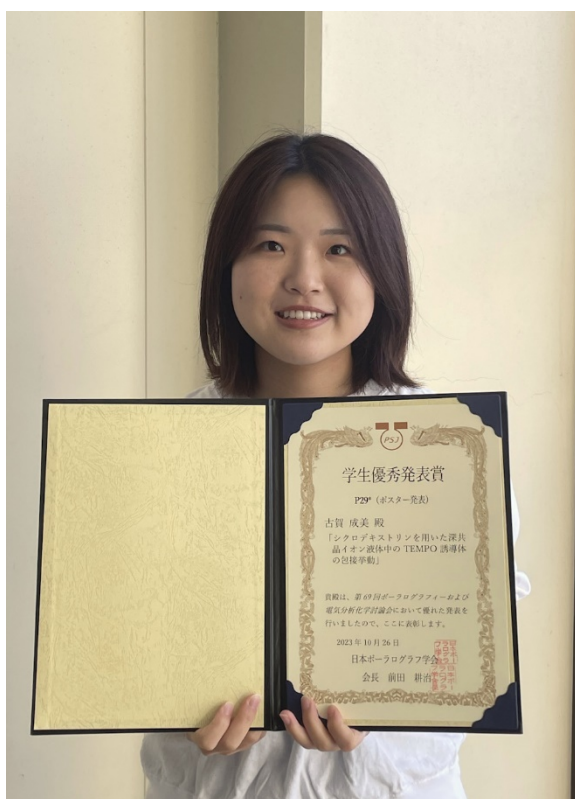 PSJ
学生優秀発表賞
P29* (ポスター発表)
古賀 成美 殿
「シクロデキストリンを用いた深共
晶イオン液体中の TEMPO 誘導体
の包接挙動」
貴殿は、第69回ポーラログラフィーおよび
電気分析化学討論会において優れた発表を
行いましたので、ここに表彰します。
2023年10月26日
日本ポーラログラフ学会
会長 前田 耕治